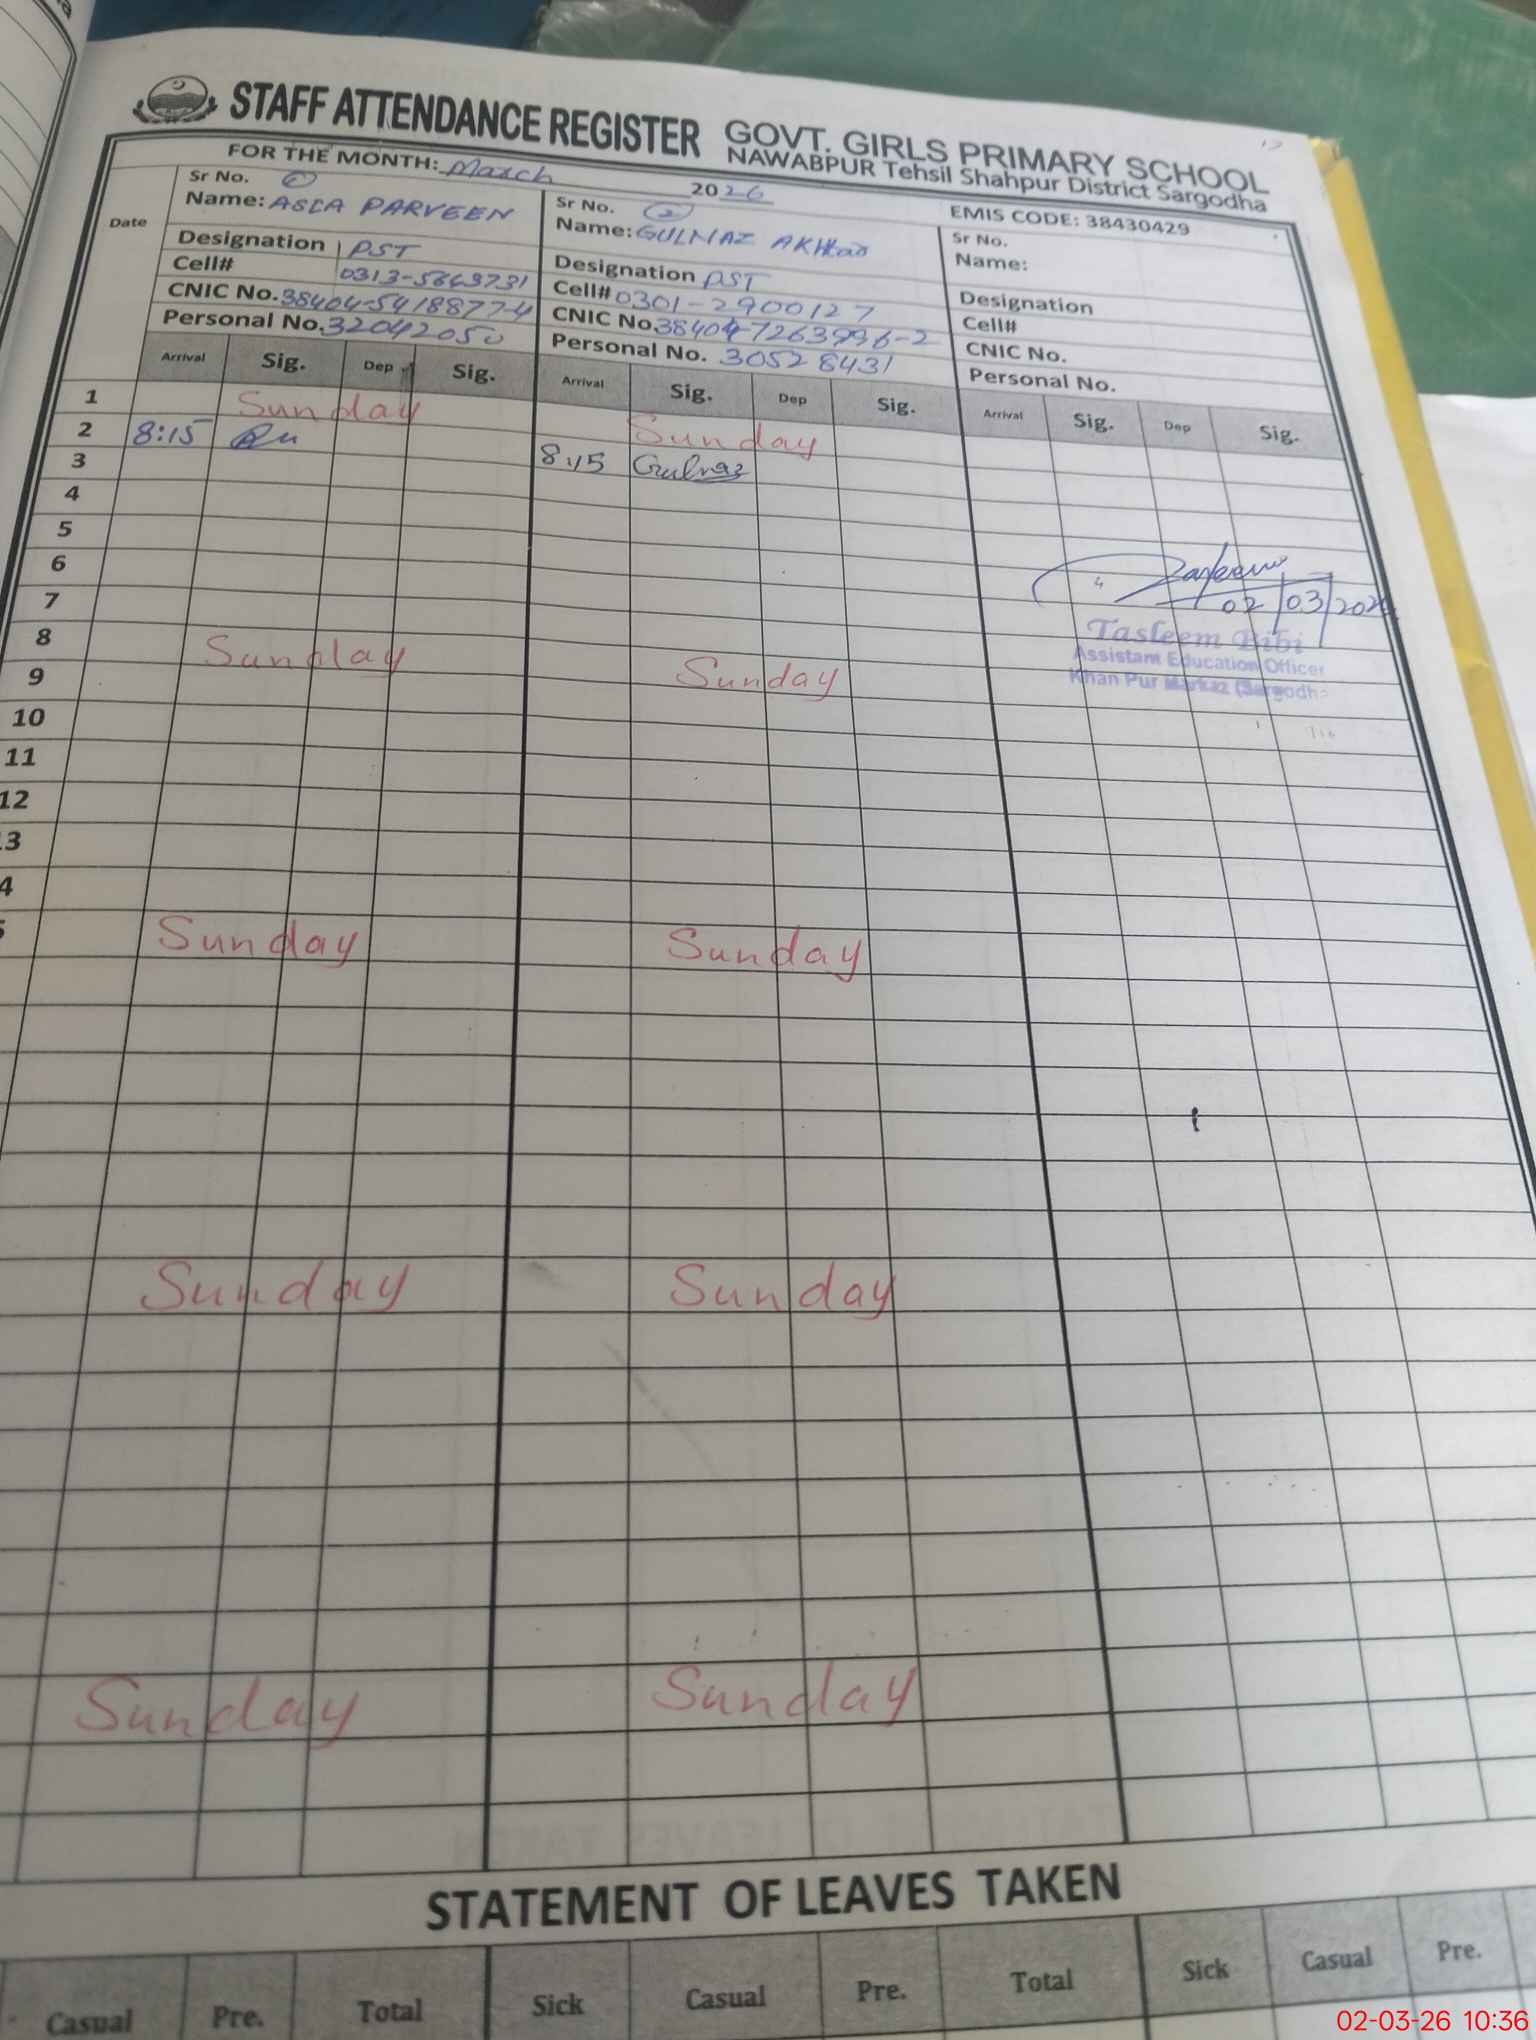 STAFF ATTENDANCE REGISTER GOVT. GIRLS PRIMARY SCHOOL
NAWABPUR Tehsil Shahpur District Sargodha
FOR THE MONTH: March 2026
EMIS CODE: 38430429
Date
Sr No. 1
Name: PARVEEN
Designation PST
Cell# 0313-5669731
CNIC No. 38404-5418877-4
Personal No. 32042050
Sr No. 2
Name: GULNAZ AKHtar
Designation PST
Cell# 0301-2900127
CNIC No. 38404-7263996-2
Personal No. 30528431
Sr No.
Name:
Designation
Cell#
CNIC No.
Personal No.
Arrival Sig. Dep Sig. Arrival Sig. Dep Sig. Arrival Sig. Dep Sig.
1 Sunday Sunday
2 8:15 8:15 Gulnaz
3
4
5
6
7
02/03/2026
8 Sunday Sunday
Tasleem Bibi
Assistant Education Officer
Khan Pur Markaz (Sargodha
9
10
11
12
3
4
5 Sunday Sunday
Sunday Sunday
Sunday Sunday
STATEMENT OF LEAVES TAKEN
Casual Pre. Total Sick Casual Pre. Total Sick Casual Pre.
02-03-26 10:36